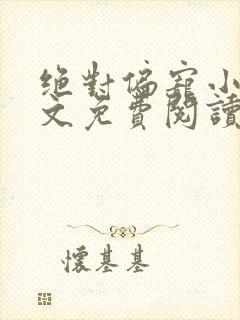 绝對偏寵小
文免費閱讀
懷基基